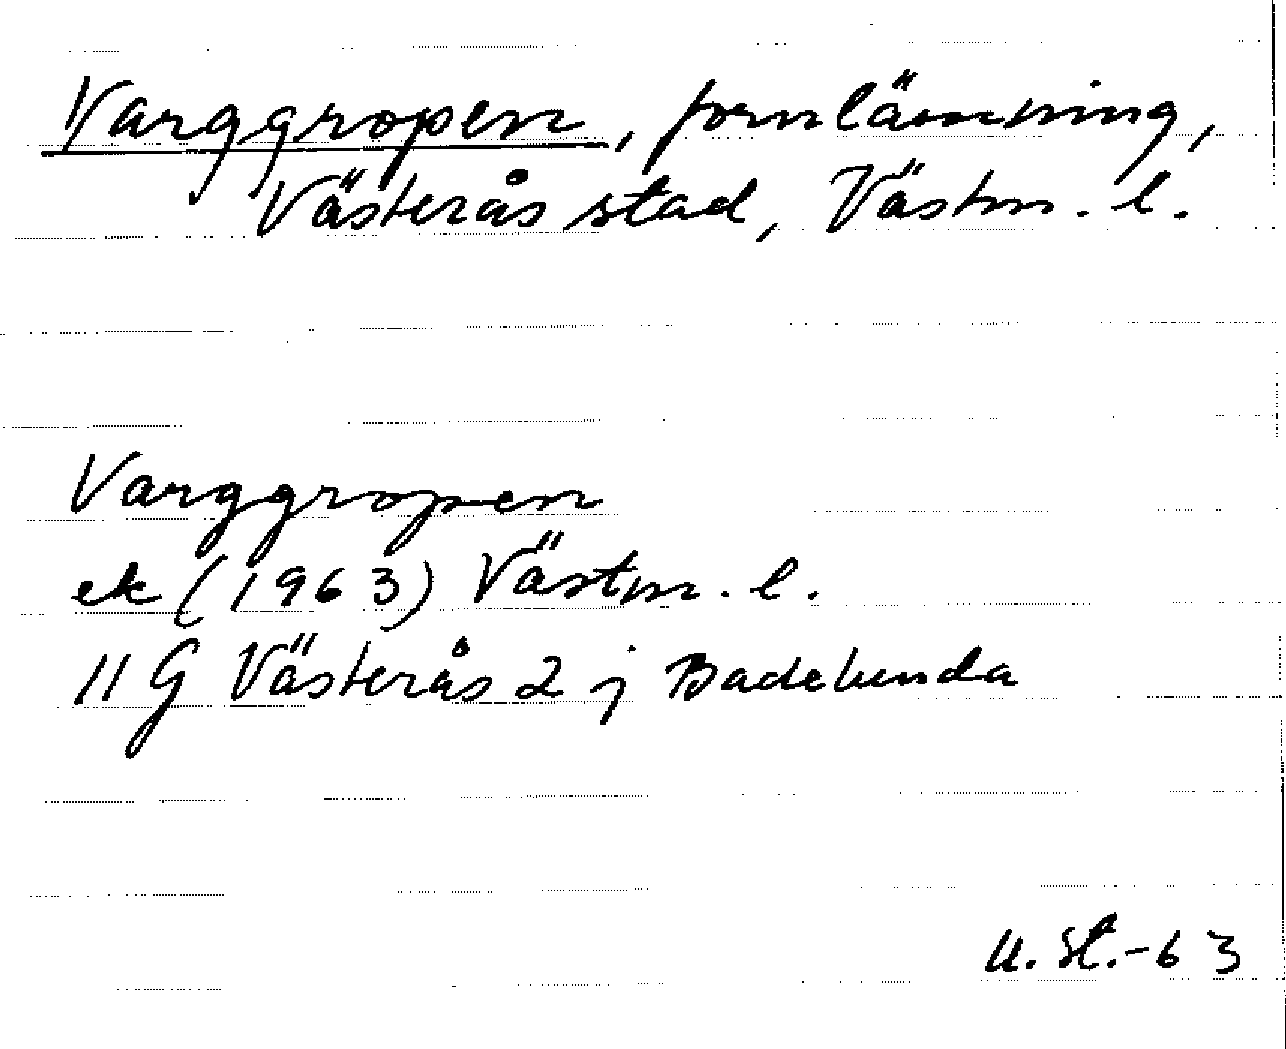 Varggropen, fornlämning,
Västerås stad, Västm. l.
Varggropen
ek (1963) Västm. l.
11 G Västerås 2 j Badelunda
-63